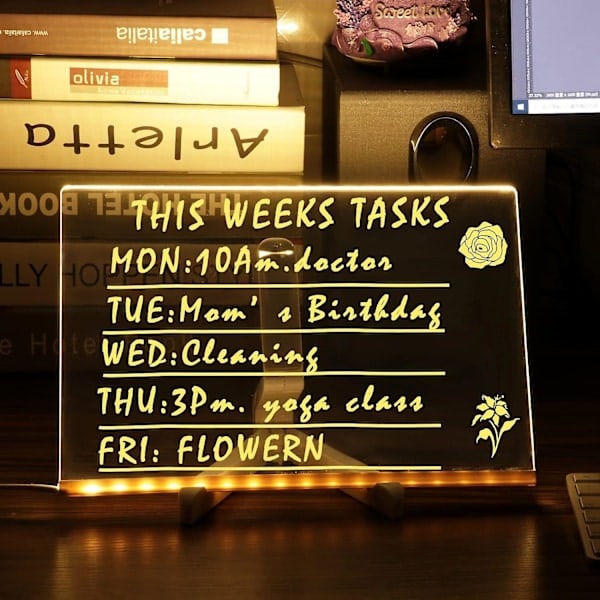 callaitalia
olivia
Arletta
THE HOTEL BOOK
LLY HOPPEN STYLE
e Hote
Sweet Love
THIS WEEKS TASKS
MON:10Am.doctor
TUE:Mom's Birthdag
WED:Cleaning
THU:3Pm. yoga class
FRI: FLOWERN